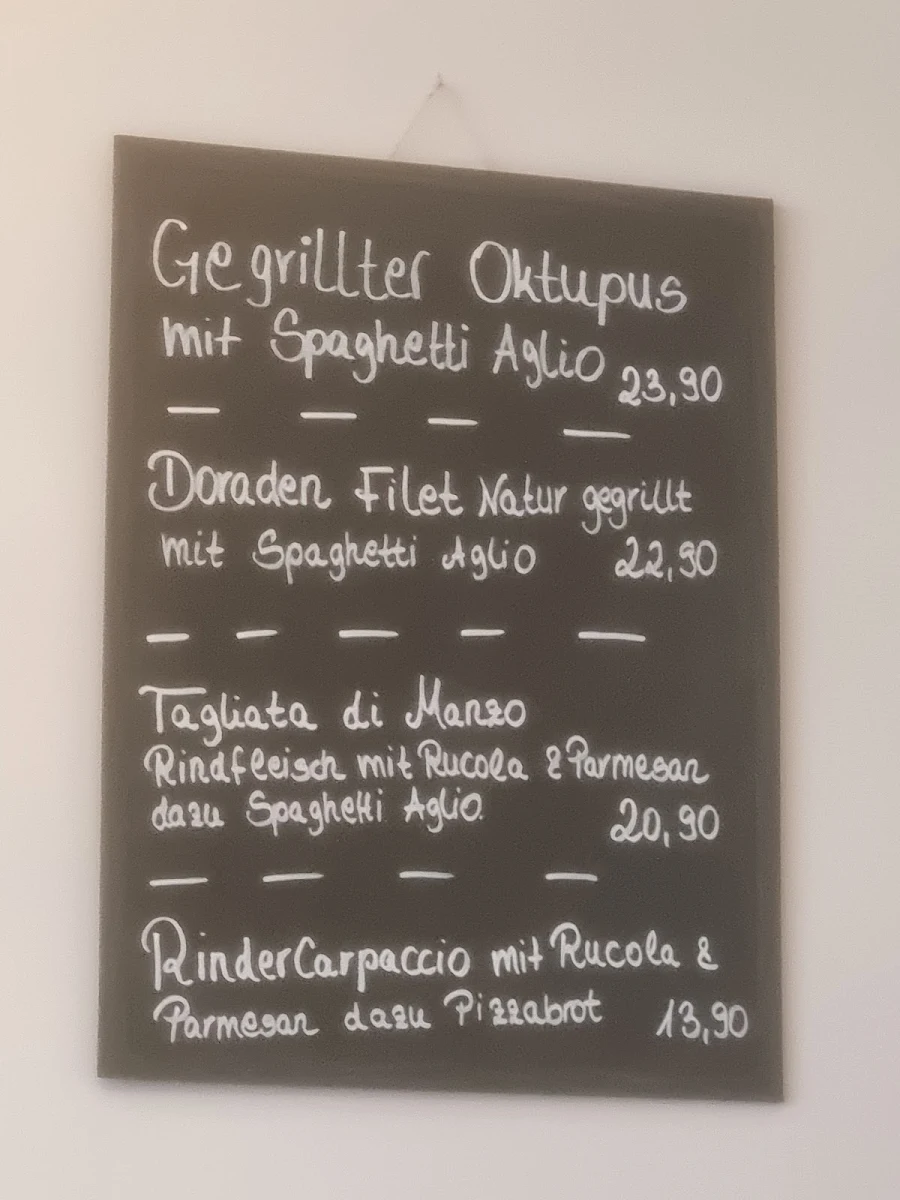 Gegrillter Oktupus
mit Spaghetti Aglio 23,90
Doraden Filet Natur gegrillt
mit Spaghetti Aglio 22,90
Tagliata di Manzo
Rindfleisch mit Rucola & Parmesan
dazu Spaghetti Aglio 20,90
RinderCarpaccio mit Rucola &
Parmesan dazu Pizzabrot 13,90